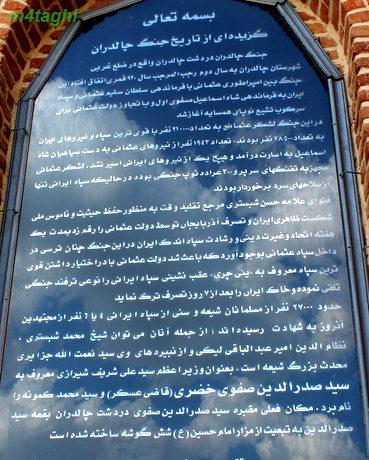 m4taghi
بسمه تعالی
گزیده ای از تاریخ جنگ چالدران
جنگ چالدران در دشت چالدران واقع در ضلع غربی
شهرستان چالدران به سال دوم رجب المرجب سال ۹۲۰ قمری اتفاق افتاد این
جنگ بین امپراطوری عثمانی با فرماندهی سلطان سلیم عثمانی و سپاه
ایران به فرماندهی شاه اسماعیل صفوی اول و با تجاوز دولت عثمانی برای
سرکوب تشیع نوپای همسایه آغاز شد
در این جنگ لشکر عثمانی به تعداد ۲۱۰۰۰۰ نفر از قوی ترین سپاه و نیروهای ایران
به تعداد ۲۸۵۰۰ نفر بودند، تعداد ۱۹۵۳ نفر از نیروهای عثمانی به دست سپاهیان شاه
اسماعیل به اسارت درآمد و هیچ یک از نیروهای ایرانی اسیر نشد. لشکر عثمانی
مجهز به تفنگهای سرپر و ۳۰۰ عراده توپ جنگی بوده در حالیکه سپاه ایرانی تنها
از سلاحهای سرد برخوردار بودند
فتوای علامه حسن شبستری مرجع تقلید وقت به منظور حفظ حیثیت و ناموس ملی
شکست ظاهری ایران و تصرف آذربایجان توسط دولت عثمانی را رقم زد بمدت یک
هفته اتحاد و غیرت دینی و رشادت سپاه اندک ایران در این جنگ چنان ترسی در
داخل سپاه عثمانی بوجود آورد که باعث شد دولت عثمانی با در اختیار داشتن قوی
ترین سپاه معروف به ینی چری، عقب نشینی سپاه ایرانی را نوعی ترفند جنگی
تلقی نموده و خاک ایران را بعد از ۷ روز تصرف ترک نماید
حدود ۲۷۰۰۰ نفر از مسلمانان شیعه و سنی از سپاه ایرانی ۴ یا ۶ نفر از مجتهدین
آنروز به شهادت رسیده اند؛ از جمله آنان می توان شیخ محمد شبستری،
نظام الدین امیر عبدالباقی لیکی و از نبیره های وی سید نعمت الله جزایری
محدث بزرگ شیعه است. بعنوان وزیر اعظم سید علی شریف شیرازی معروف به
سید صدرالدین صفوی خضری (قاضی عسکر) و سید محمد کمونه را
نام برد. مکان فعلی مقبره سید صدرالدین صفوی در دشت چالدران بقعه سید
صدرالدین به تبعیت از مزار امام حسین (ع) شش گوشه ساخته شده است